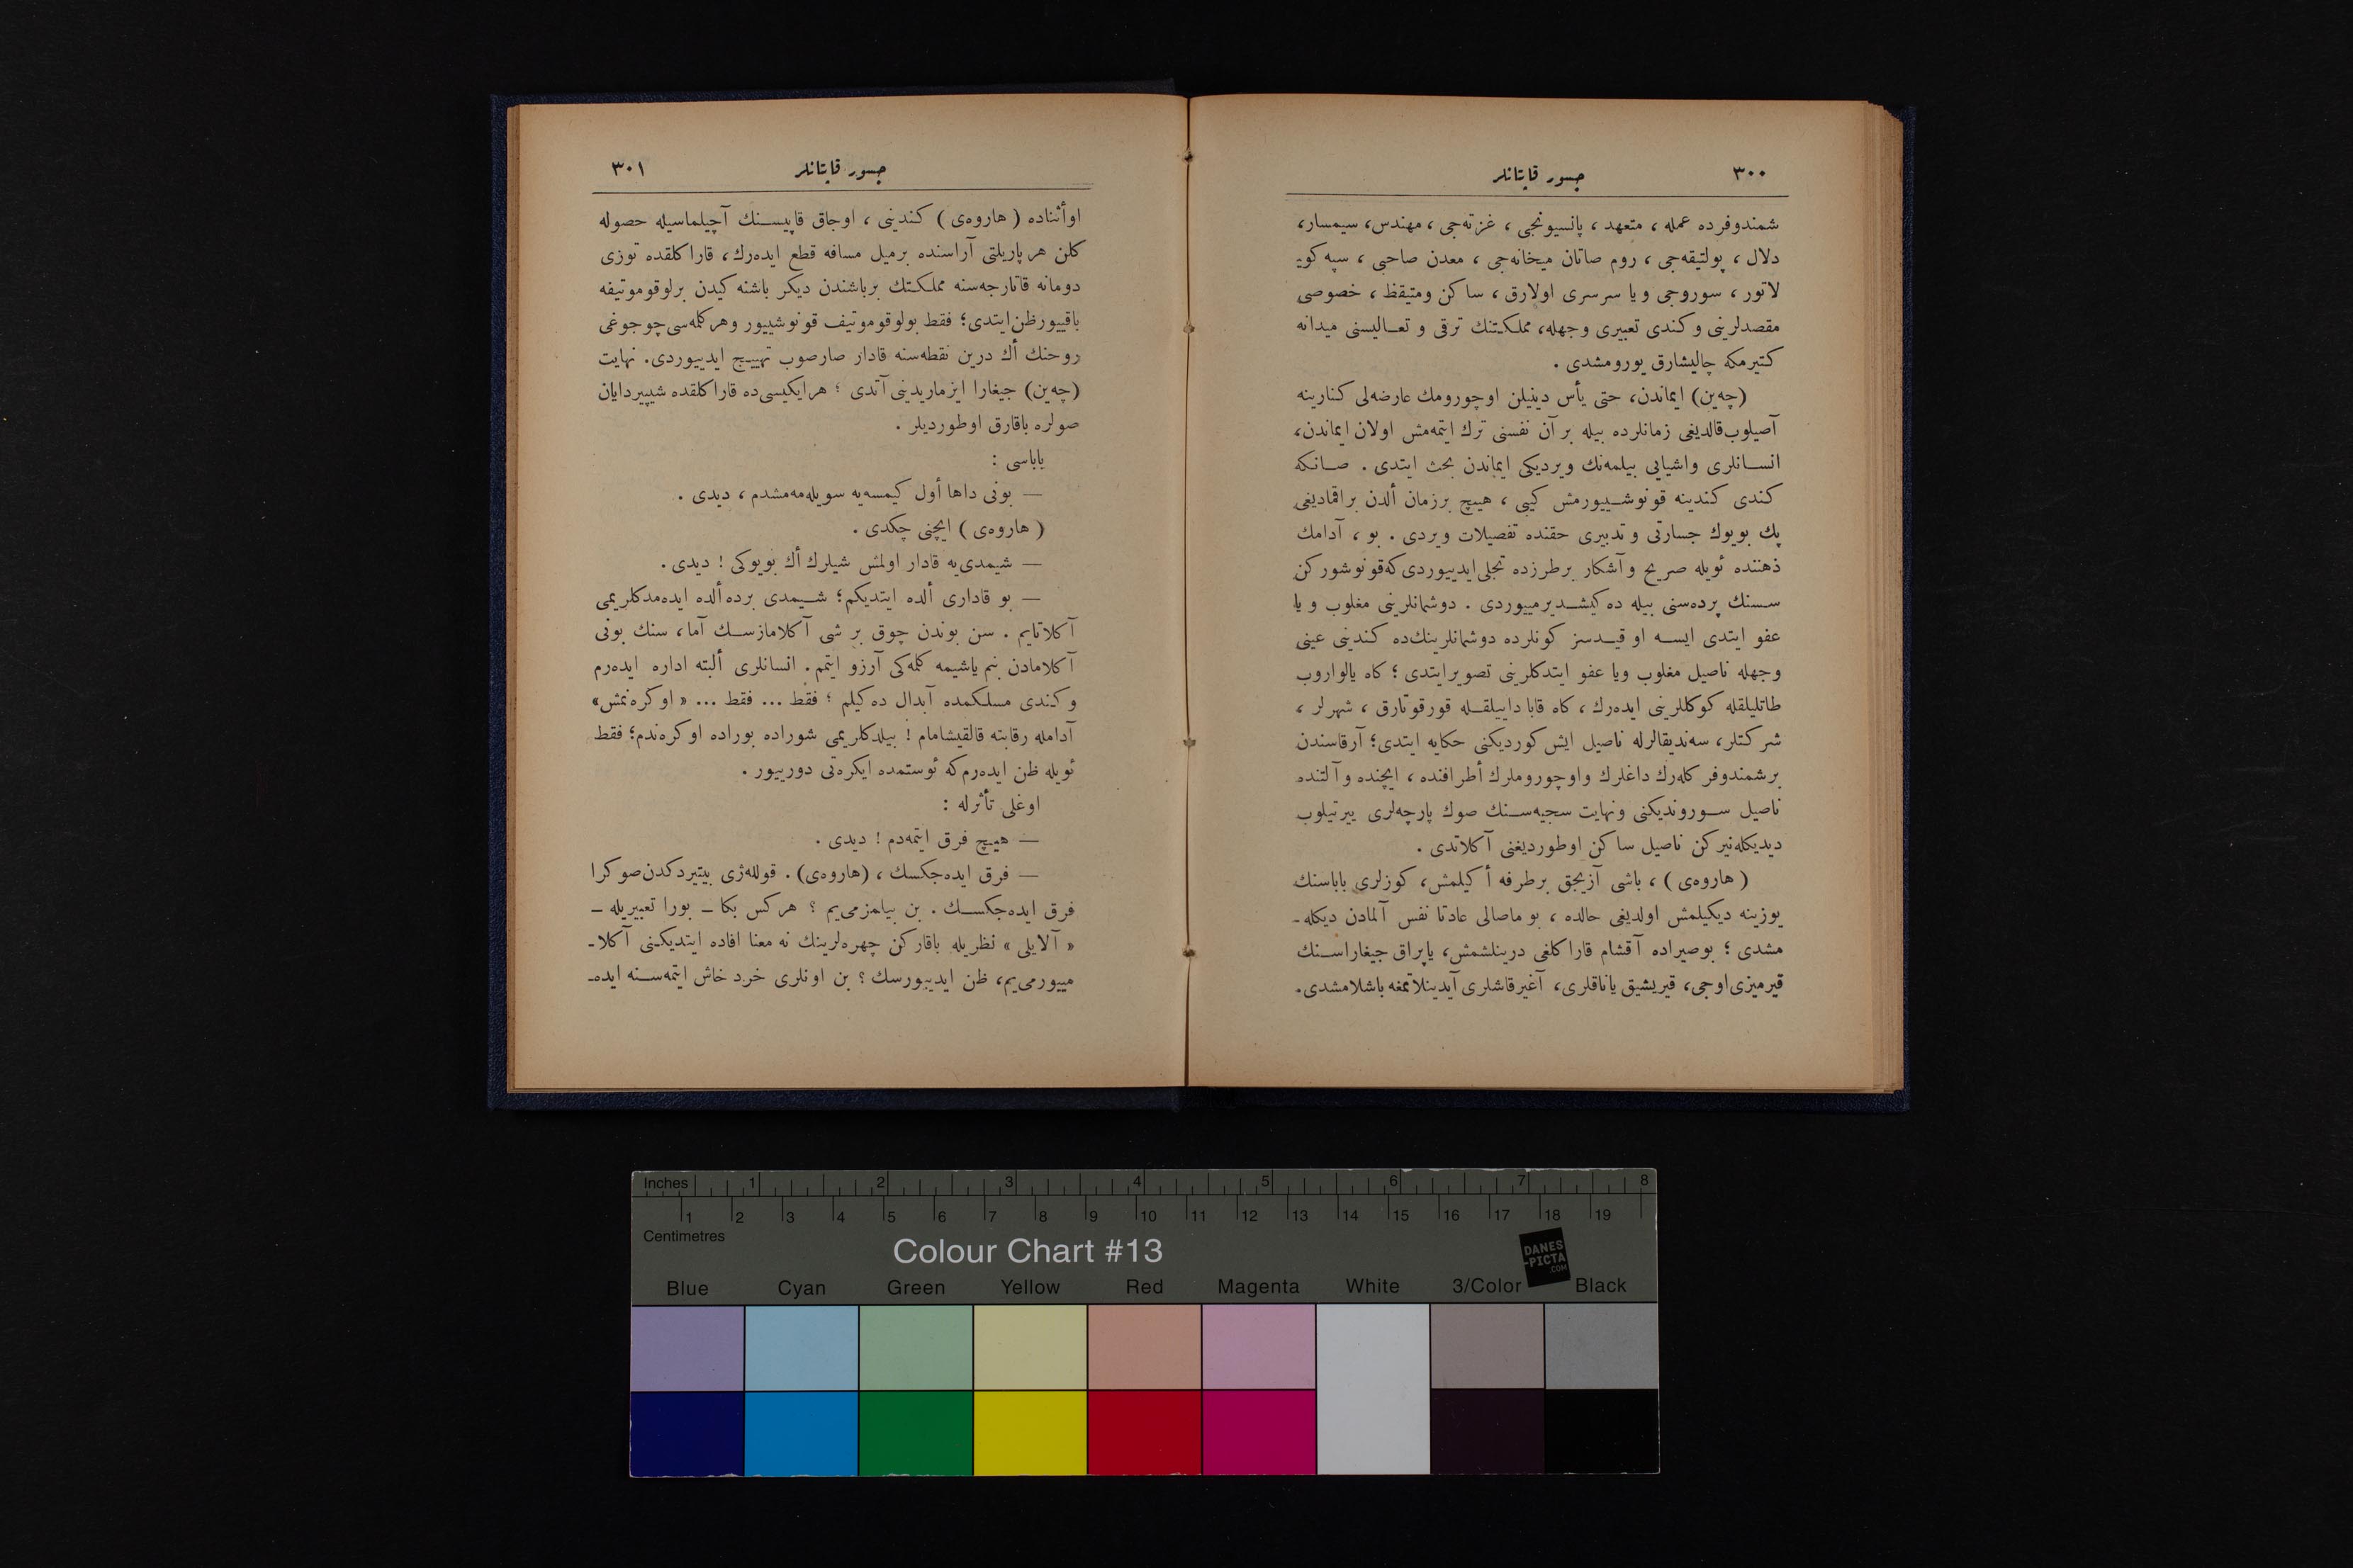 ٣٠٠
جسور قاپتانلر
شمندوفرده عمله ، متعهد ، پانسیونجی ، غزته‌جی ، مهندس، سیمسار،
دلال ، پولتیقه‌جی ، روم صاتان میخانه‌جی ، معدن صاحبی ، سپه کو-
لاتور ، سوروجی ویا سرسری اولارق ، ساکن ومتیقظ ، خصوصی
مقصدلرینی وکندی تعبیری وجهله، مملکتنك ترقی و تعـالیسنی میدانه
کتیرمکه چالیشارق یورومشدی .
(چه‌ین) ایماندن، حتی یأس دینیلن اوچورومك عارضه‌لی کنارینه
آصیلوب قالدیغی زمانلرده بیله بر آن نفسنی ترك ایتمه‌مش اولان ایماندن،
انسـانلری واشیایی بیلمه‌نك ویردیکی ایماندن بحث ایتدی . صـانکه
کندی کندینه قونوشـییورمش کیبی ، هیچ برزمان ألدن براقمادیغی
پك بویوك جسارتی وتدبیری حقنده تفصیلات ویردی . بو ، آدامك
ذهننده ئویله صریح وآشکار برطرزده تجلی ایدییوردی‌که قونوشورکن
سسنك پرده‌سنی بیله ده‌کیشـدیرمییوردی . دوشمانلرینی مغلوب ویا
عفو ایتدی ایسـه او قیـدسز کونلرده دوشمانلرینك‌ده کندینی عینی
وجهله ناصیل مغلوب ویا عفو ایتدکلرینی تصویر ایتدی ؛ کاه یالواروب
طاتلیلقله کوکللرینی ایده‌رك ، کاه قابا داییلقـله قورقوتارق ، شهرلر ،
شرکتلر، سه‌ندیقالرله ناصیل ایش کوردیکنی حکایه ایتدی؛ آرقاسندن
برشمندوفر کله‌رك داغلرك واوچوروملرك أطرافنده ، ایچنده وآلتنده
ناصیل سـوروندیکنی ونهایت سجیه‌سـنك صوك پارچه‌لری ییرتیلوب
دیدیکله‌نیرکن ناصیل ساکن اوطوردیغنی آکلاتدی .
( هاروه‌ی ) ، باشی آزیجق برطرفه أکیلمش، کوزلری باباسنك
یوزینه دیکیلمش اولدیغی حالده ، بو ماصالی عادتا نفس آلمادن دیکله-
مشدی ؛ بوصیراده آقشام قاراکلغی درینلشمش، یاپراق جیغاراسـنك
قیرمیزی اوجی، قیریشیق یاناقلری، آغیرقاشلری آیدینلاتمغه باشلامشدی.
جسور قاپتانلر
٣٠١
اوأثناده ( هاروه‌ی ) کندینی ، اوجاق قاپیسـنك آچیلماسیله حصوله
کلن هر پاریلتی آراسنده برمیل مسافه قطع ایده‌رك ، قاراکلقده توزی
دومانه قاتارجه‌سنه مملکتك برباشندن دیکر باشنه کیدن برلوقوموتیفه
باقییورظن ایتدی؛ فقط بولوقوموتیف قونوشییور وهرکله‌سی چوجوغی
روحنك أك درین نقطه‌سنه قادار صارصوب تهییج ایدییوردی. نهایت
(چه‌ین) جیغارا ایزماریدینی آتدی ؛ هرایکیسی‌ده قاراکلقده شیپیردایان
صولره باقارق اوطوردیلر .
باباسی :
— بونی داها أول کیمسه‌یه سویله‌مه‌مشدم ، دیدی .
( هاروه‌ی ) ایچنی چکدی .
— شیمدی‌یه قادار اولمش شیلرك أك بویوکی ! دیدی .
— بو قاداری ألده ایتدیکم؛ شـیمدی برده ألده ایده‌مدکلریمی
آکلاتایم . سن بوندن چوق بر شی آکلامازسـك آما، سنك بونی
آکلامادن بنم یاشیمه کلمه‌کی آرزو ایتمم . انسانلری ألبته اداره ایده‌رم
وکندی مسلکمده آبدال ده‌کیلم ؛ فقط ... فقط ... « اوکره‌نمش»
آدامله رقابته قالقیشامام ! بیلدکلریمی شوراده بوراده اوکره‌ندم؛ فقط
ئویله ظن ایده‌رم‌که ئوستمده ایکره‌تی دورییور .
اوغلی تأثرله :
— هیچ فرق ایتمه‌دم ! دیدی .
— فرق ایده‌جکسك ، (هاروه‌ی) . قولله‌ژی بیتیردکدن صوکرا
فرق ایده‌جکسـك . بن بیلمزمی‌یم ؟ هرکس بکا - بورا تعبیریله -
« آلایلی » نظریله باقارکن چهره‌لرینك نه معنا افاده ایتدیکـنی آکلا-
مییورمی‌یم، ظن ایدییورسك ؟ بن اونلری خرد خاش ایتمه‌سـنه ایده-
Inches 1 2 3 4 5 6 7 8
1 2 3 4 5 6 7 8 9 10 11 12 13 14 15 16 17 18 19
Centimetres
Colour Chart #13
DANES
-PICTA
.COM
Blue Cyan Green Yellow Red Magenta White 3/Color Black